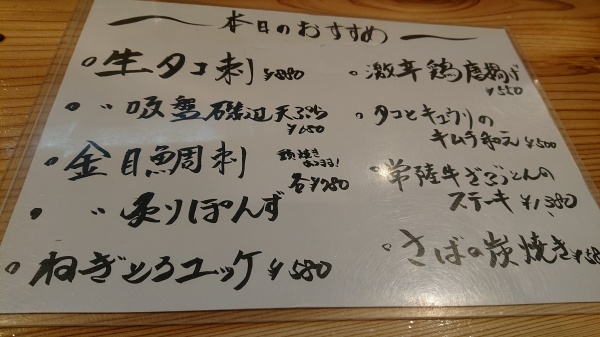 本日のおすすめ
生タコ刺 ¥880
〃 吸盤磯辺天ぷら ¥680
金目鯛刺 各¥980
〃 炙りぽんず
ねぎとろユッケ ¥580
激辛鶏唐揚げ ¥550
タコとキュウリの
キムチ和え ¥500
常陸牛ざぶとんの
ステーキ ¥1,380
さばの炭焼き